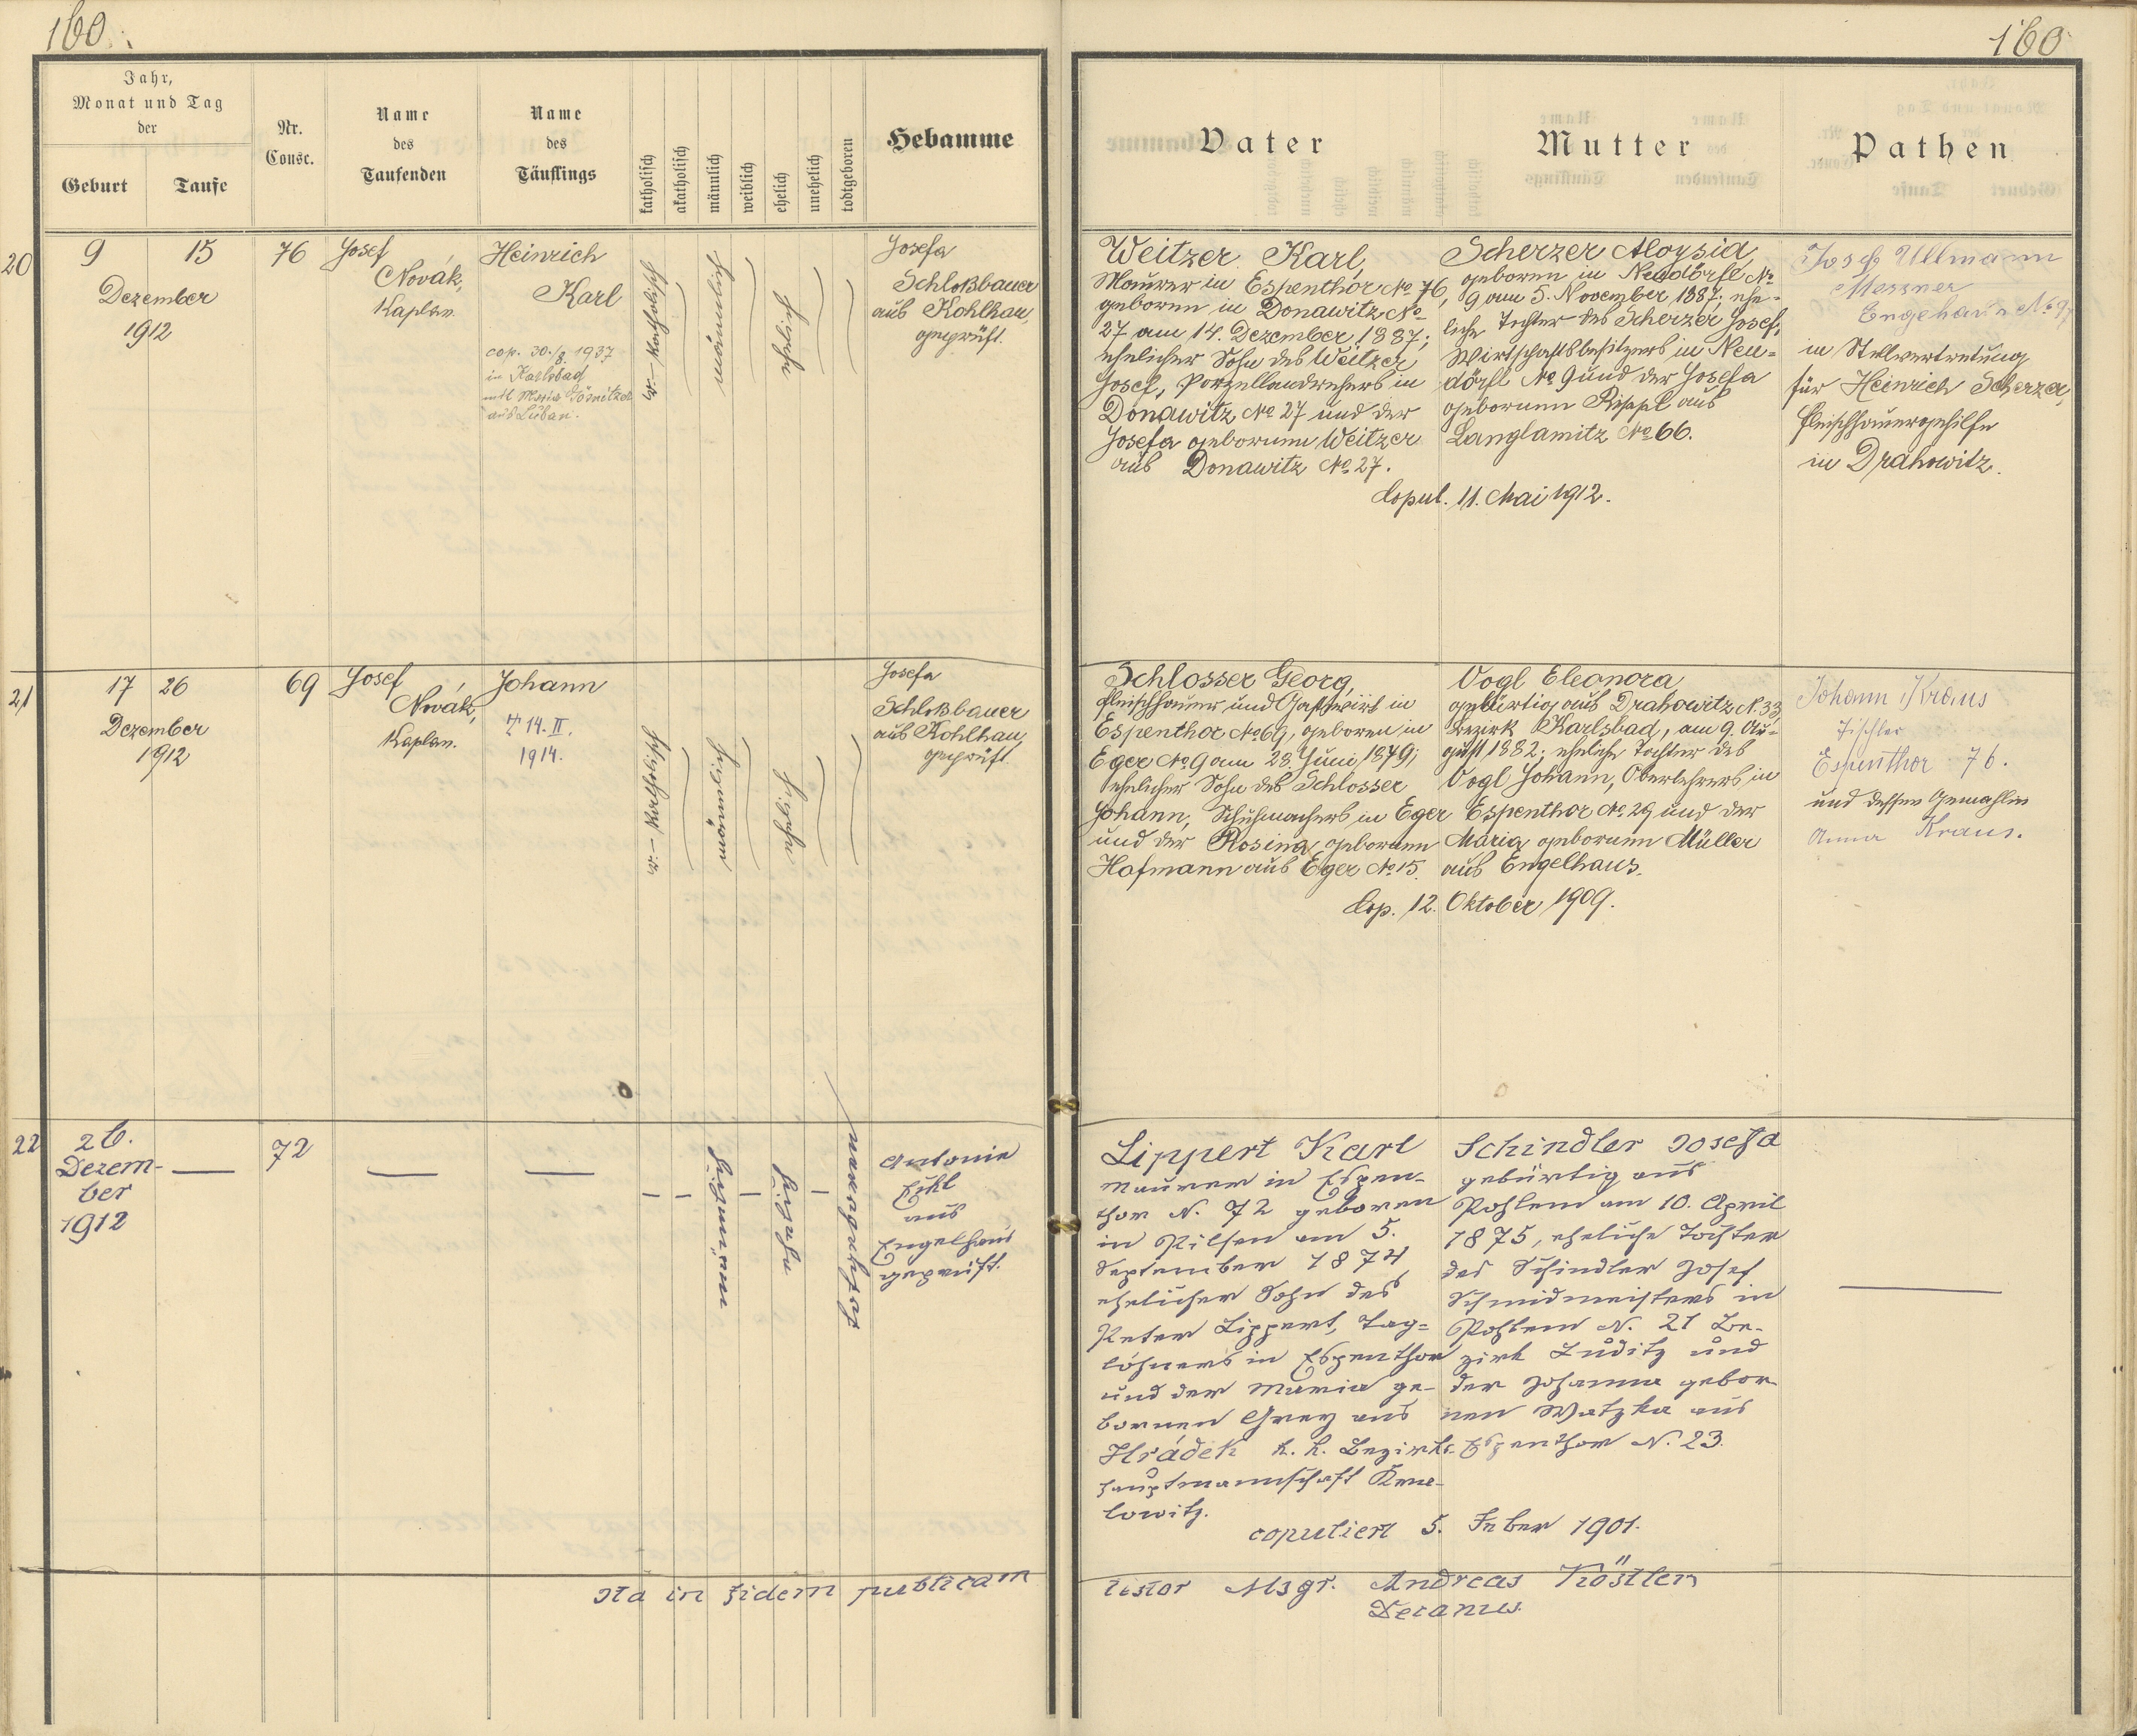 160.
160
Jahr,
Monat und Tag
der
Geburt
Taufe
Nr.
Consc.
Name
des
Taufenden
Name
des
Täuflings
katholisch
akatholisch
männlich
weiblich
ehelich
unehelich
todtgeboren
Hebamme
Vater
Mutter
Pathen
20
9 15
Dezember
1912
76
Josef
Novák,
Kaplan.
Heinrich
Karl
cop. 30./8. 1937
in Karlsbad
mit Maria
aus Luban.
r.-katholisch
männlich
ehelich
Josefa
Schloßbauer
aus Kohlhau,
geprüft.
Weitzer Karl,
Maurer in Espenthor No 76,
geboren in Donawitz No
27 am 14. Dezember 1887;
ehelicher Sohn des Weitzer
Josef, Porzellandrehers in
Donawitz No 27 und der
Josefa geborenen Weitzer
aus Donawitz No 27.
Scherzer Aloysia,
geboren in Neudörfl No
9 am 5. November 1887; ehe-
liche Tochter des Scherzer Josef,
Wirtschaftsbesitzers in Neu-
dörfl No 9 und der Josefa
geborenen Rippl aus
Langlamitz No 66.
Copul. 11. Mai 1912.
Josef Ullmann
Messner
Engelhaus No 97
in Stellvertretung
für Heinrich Scherzer,
Fleischhauergehilfe
in Drahowitz.
21
17 26
Dezember
1912
69
Josef
Novák,
Kaplan.
Johann
† 14. II.
1914.
r.-katholisch
männlich
ehelich
Josefa
Schloßbauer
aus Kohlhau,
geprüft.
Schlosser Georg,
Fleischhauer und Gastwirt in
Espenthor No 69, geboren in
Eger No 9 am 28. Juni 1849;
ehelicher Sohn des Schlosser
Johann, Schuhmachers in Eger
und der Rosina geborenen
Hofmann aus Eger No 15.
Vogl Eleonora
gebürtig aus Drahowitz N. 33,
Bezirk Karlsbad, am 9. Au-
gust 1882; eheliche Tochter des
Vogl Johann, Oberlehrers in
Espenthor No 29 und der
Maria geborenen Müller
aus Engelhaus.
Cop. 12. Oktober 1909.
Johann Kraus
Tischler
Espenthor 76.
und dessen Gemahlin
Anna Kraus.
22
26.
Dezem-
ber
1912
—
72
—
—
– –
männlich
–
ehelich
–
Antonie
aus
Engelhaus
geprüft.
Lippert Karl
Maurer in Espen-
thor N. 72 geboren
in Pilsen am 5.
September 1874,
ehelicher Sohn des
Peter Lippert, Tag-
löhners in Espenthor
und der Maria ge-
bornen Grey aus
Hrádek k. k. Bezirks-
hauptmannschaft
lowitz.
Schindler Josefa
gebürtig aus
Pohlem am 10. April
1875, eheliche Tochter
des Schindler Josef
Schmidmeisters in
Pohlem N. 21 Be-
zirk Luditz und
der Johanna gebor-
nen Watzka aus
Espenthor N. 23.
copuliert 5. Feber 1901.
—
Ita in fidem publicam testor Msgr. Andreas Köstler,
Decanus.